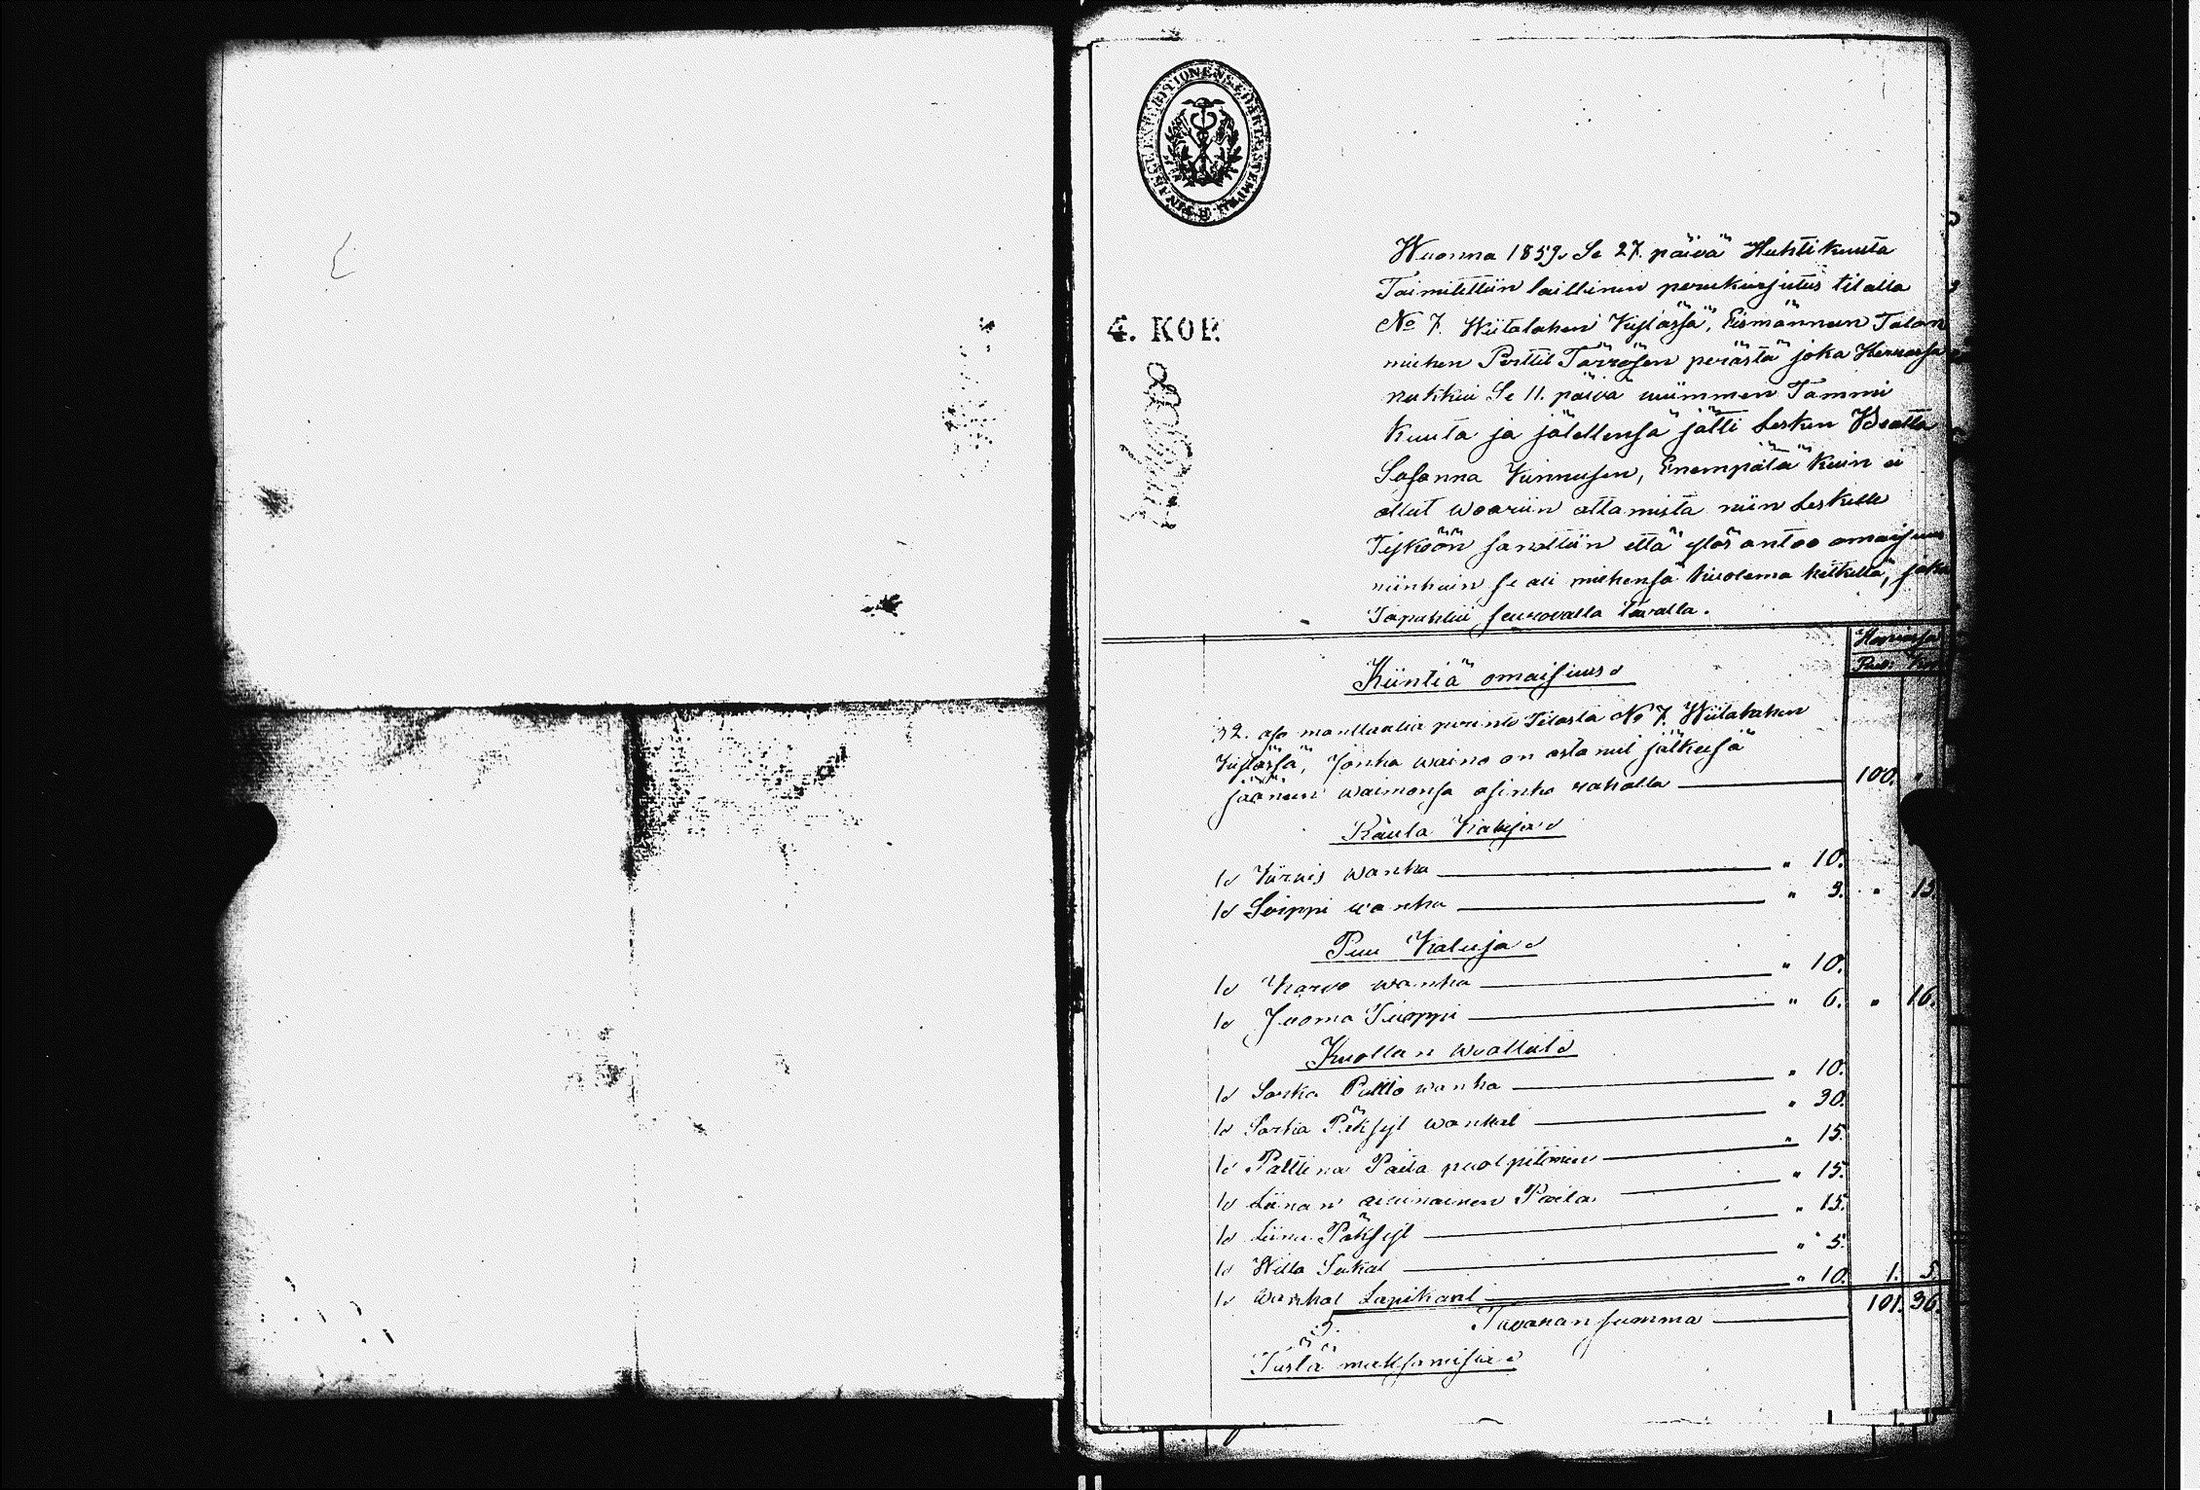 4. KOP.
Wuonna 1859. Se 27. päivä Huhtikuuta
Toimitettiin laillinen perukirjutus tilalla
No 7. Wiitalahen Kylässä, Eismännen Talon
miehen Perttil Tarrosen perästä joka Herrassa
nukkui Se 11. päivä wiimmen Tammi
kuuta ja jälellensä jätti Lesken Beatta
Sosanna Kinnusen, Enempätä kuin ei
ollut waariin ottamista niin Leskelle
Tyköön sanottiin että ylös antoo omaisuus
niinkuin se oli miehensä kuolema hetkellä, joka
Tapahtui seuraavalla tavalla.
Hopiassa
Rup. Kop
Kiintiä omaisuus
32. osa manttaalia perinto Tilasta No 7. Wiitalahen
Kylässä, Jonka waino on ostanut jälkensä
jäänen waimonsa osinko rahalla 100. "
Rauta Kaluja
1 Kirvis wanha " 10.
1 Sirppi wanha " 3. " 13
Puu Kaluja
1 Korvo wanha " 10.
1 Juoma Tuoppi " 6. " 16.
Kuollen waattet
1 Sarka Puttio wanha " 10.
1 Sarka Pöksyt wanhat " 30.
1 Palttina Paita puolpitonen " 15.
1 Liinan aiuinainen Paita " 15.
1 Liina Pöksyt " 15.
1 Willa Sukat " 5.
1 wanhat Lapikaat " 10. 1. 5.
Tavaran summa 101. 36.
Tästä maksamisia